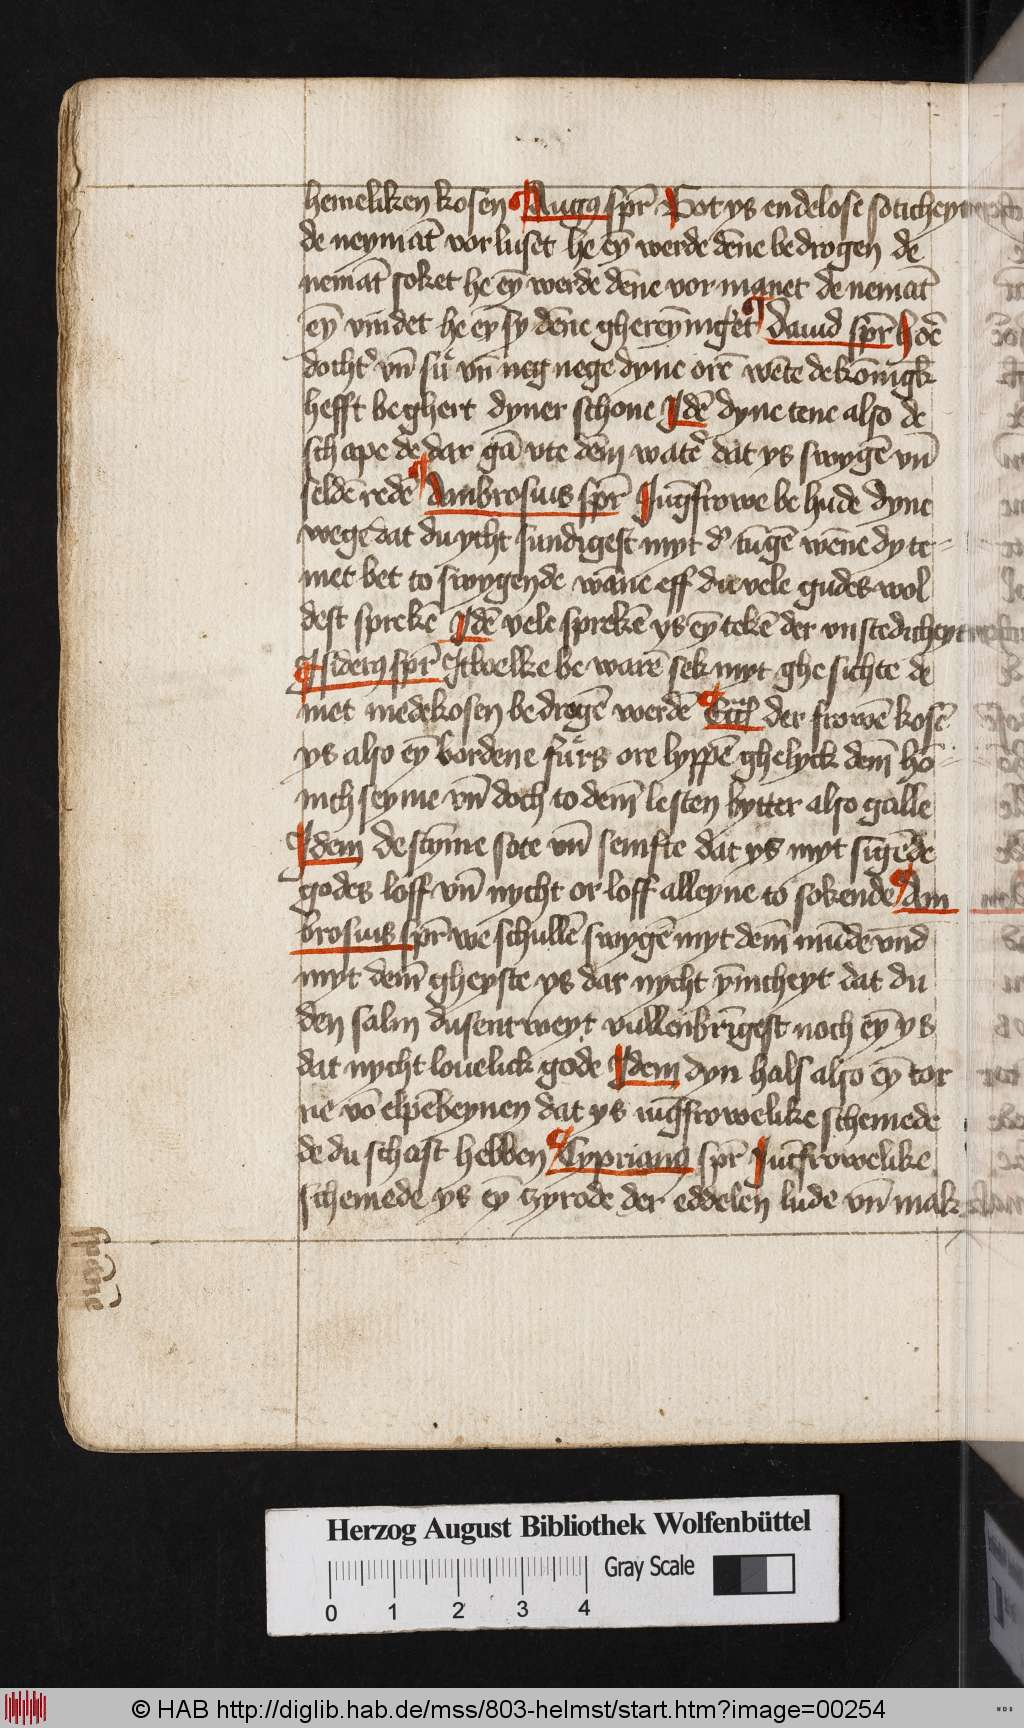 hemeliken kosen Augꝯ spr̄ Got ys endelose soticheyt
de neymāt vorluset he eȳ werde dēne bedrogen de
nemāt soket he eȳ werde dēne vor manet de nemāt
eȳ vindet he eȳ sy dēne ghereȳniget Dauid spr̄ hoē
dochtˀ vn̄ sū vn̄ neg nege dyne orē wēte de kōnigk
hefft beghert dyner schone Idē dyne tene also de
schape de dar gā vte dēm watˀ dat ys swygē vn̄
seldē redē Ambrosius spr̄ Iūgfrowe be hude dyne
wege dat du ycht sundigest myt dˀ tūgē wēne dy te-
met bet to swygende wāne eff du vele gudes wol
dest sprekē Idē vele sprekē ys eȳ tekē der vnstedicheyt
Isiderꝯ spr̄ Itwelke be warē sek myt ghe sichte de
met medekosen bedrogē werdē der frowē kosē
ys also eȳ bordene fūrs ore lyppē ghelyck dem̄ hō-
nich seyme vn̄ doch to dem̄ lesten bytter also galle
Idem de stȳme sote vn̄ semfte dat ys myt sīgēde
godes loff vn̄ nycht or loff alleyne to sokende Am
brosius spr̄ we schullē swygē myt dem̄ mūde vnd
myt dem̄ gheyste ys dar nycht ȳnicheyt dat du
den salm dusentweyt vullenbrīgest noch eȳ ys
dat nycht louelick gode Idem dyn hals also eȳ tor
ne vō elpēbeynen dat ys iūgfrowelike schemede
de du schast hebben Cyprianꝯ spr̄ Iūcfrowelike
schemede ys eȳ tzyrode der eddelen lude vn̄ mak
Herzog August Bibliothek Wolfenbüttel
Gray Scale
0 1 2 3 4
© HAB http://diglib.hab.de/mss/803-helmst/start.htm?image=00254